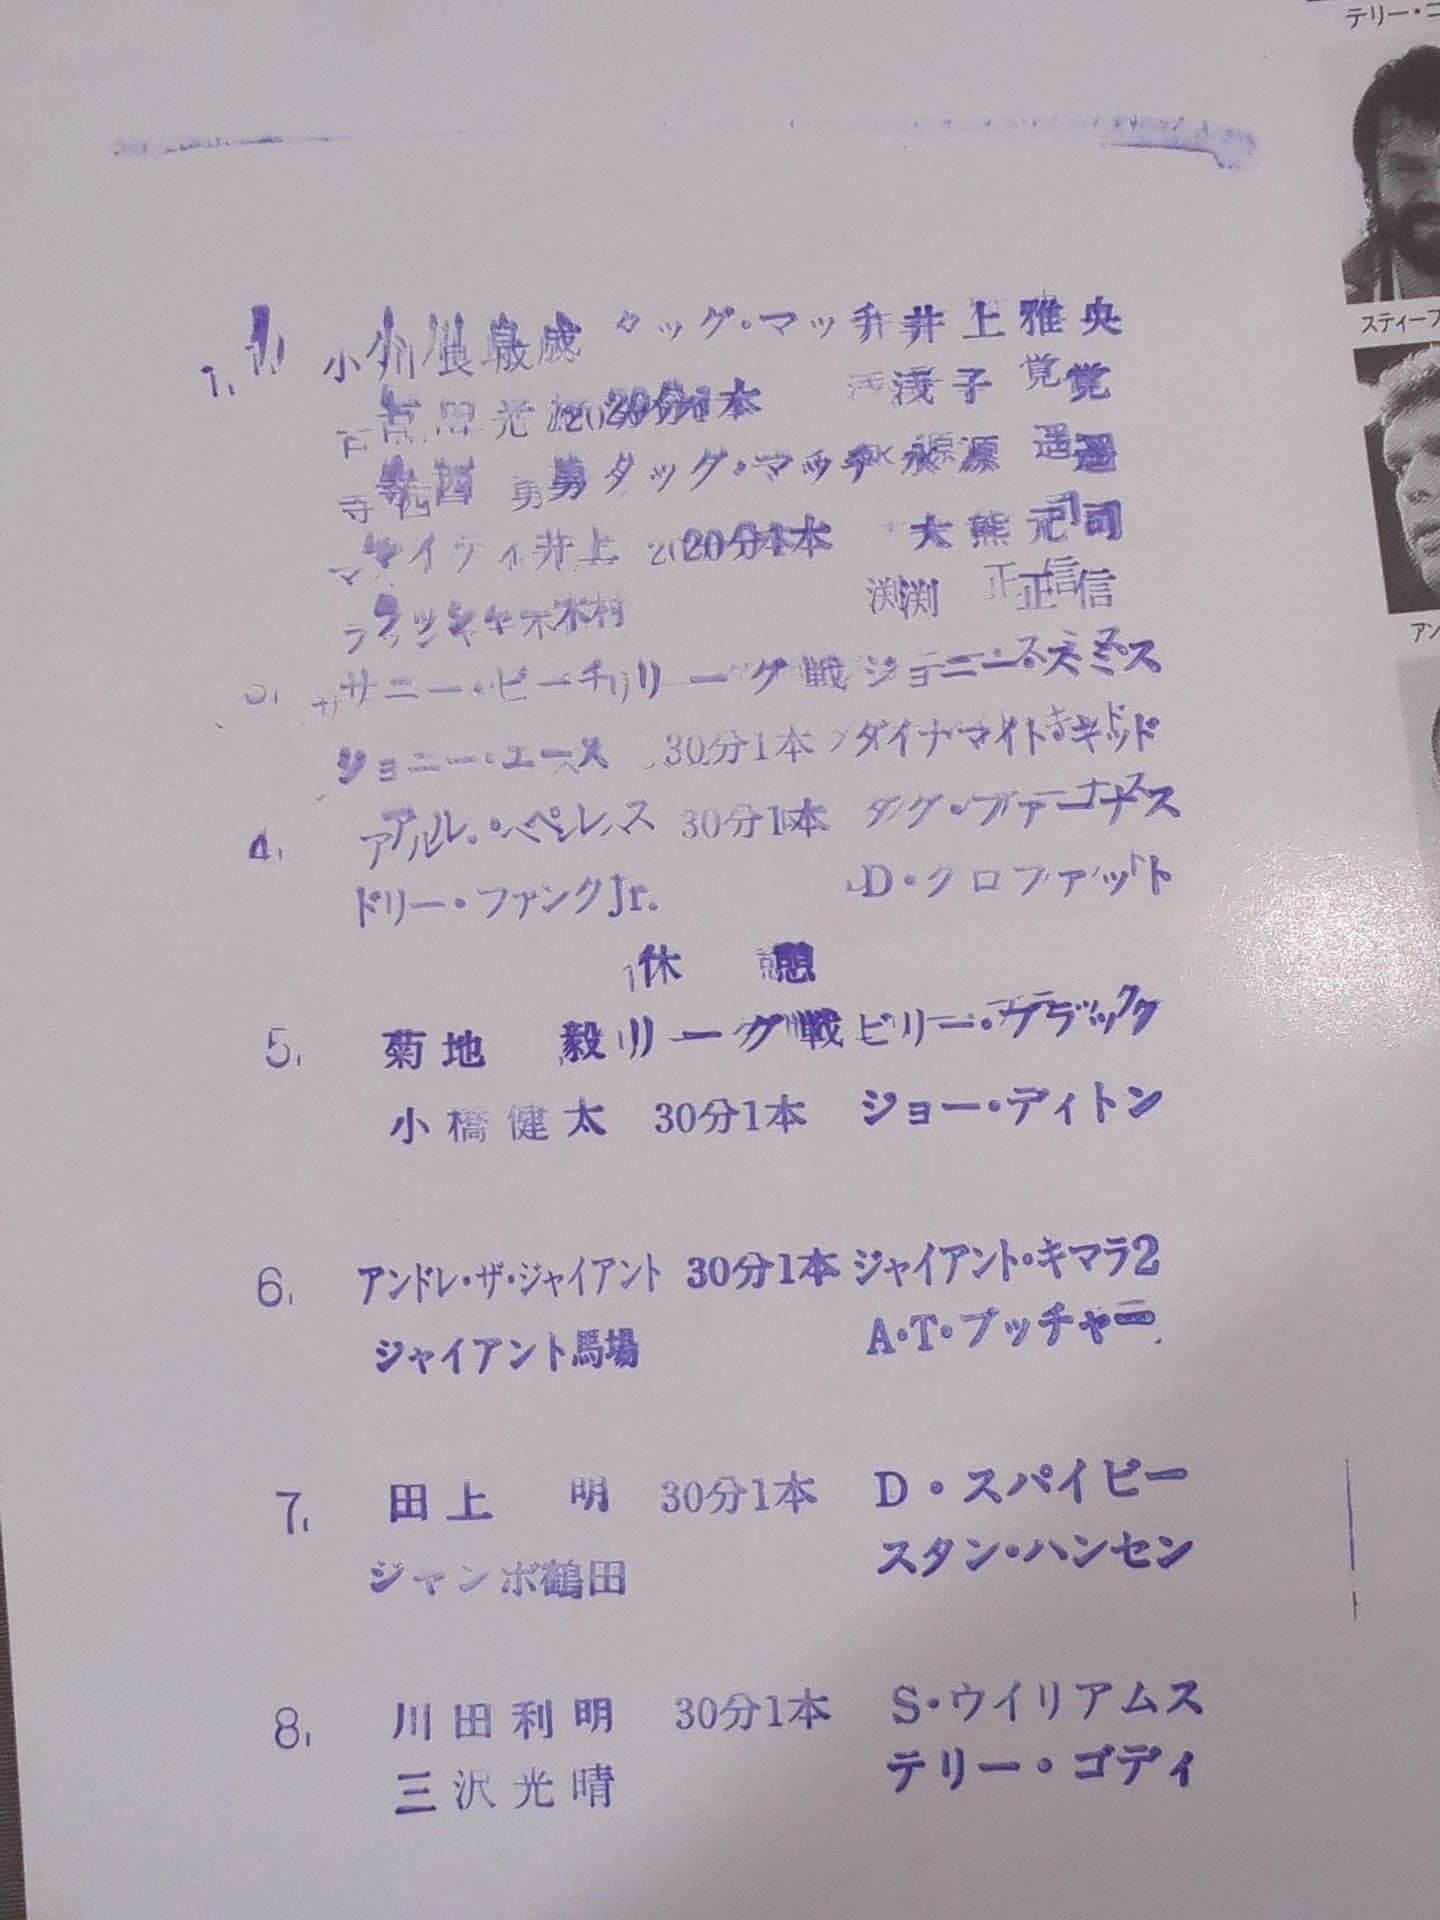 テリー・
1. 小川良成 タッグ・マッチ 井上雅央
百田光 20分1本 浅子 覚
寺西 勇 タッグ・マッチ 永源 遥
マイティ井上 20分1本 大熊元司
ラッシャー木村 渕 正信
サニー・ビーチ リーグ戦 ジョニー・スミス
ジョニー・エース 30分1本 ダイナマイト・キッド
4. アル・ペレス 30分1本 ダグ・ファーナス
ドリー・ファンクJr. D・クロファット
休 憩
5. 菊地 毅 リーグ戦 ビリー・ブラック
小橋健太 30分1本 ジョー・ディトン
6. アンドレ・ザ・ジャイアント 30分1本 ジャイアント・キマラ2
ジャイアント馬場 A・T・ブッチャー
7. 田上 明 30分1本 D・スパイビー
ジャンボ鶴田 スタン・ハンセン
8. 川田利明 30分1本 S・ウイリアムス
三沢光晴 テリー・ゴディ
スティーブ
アン